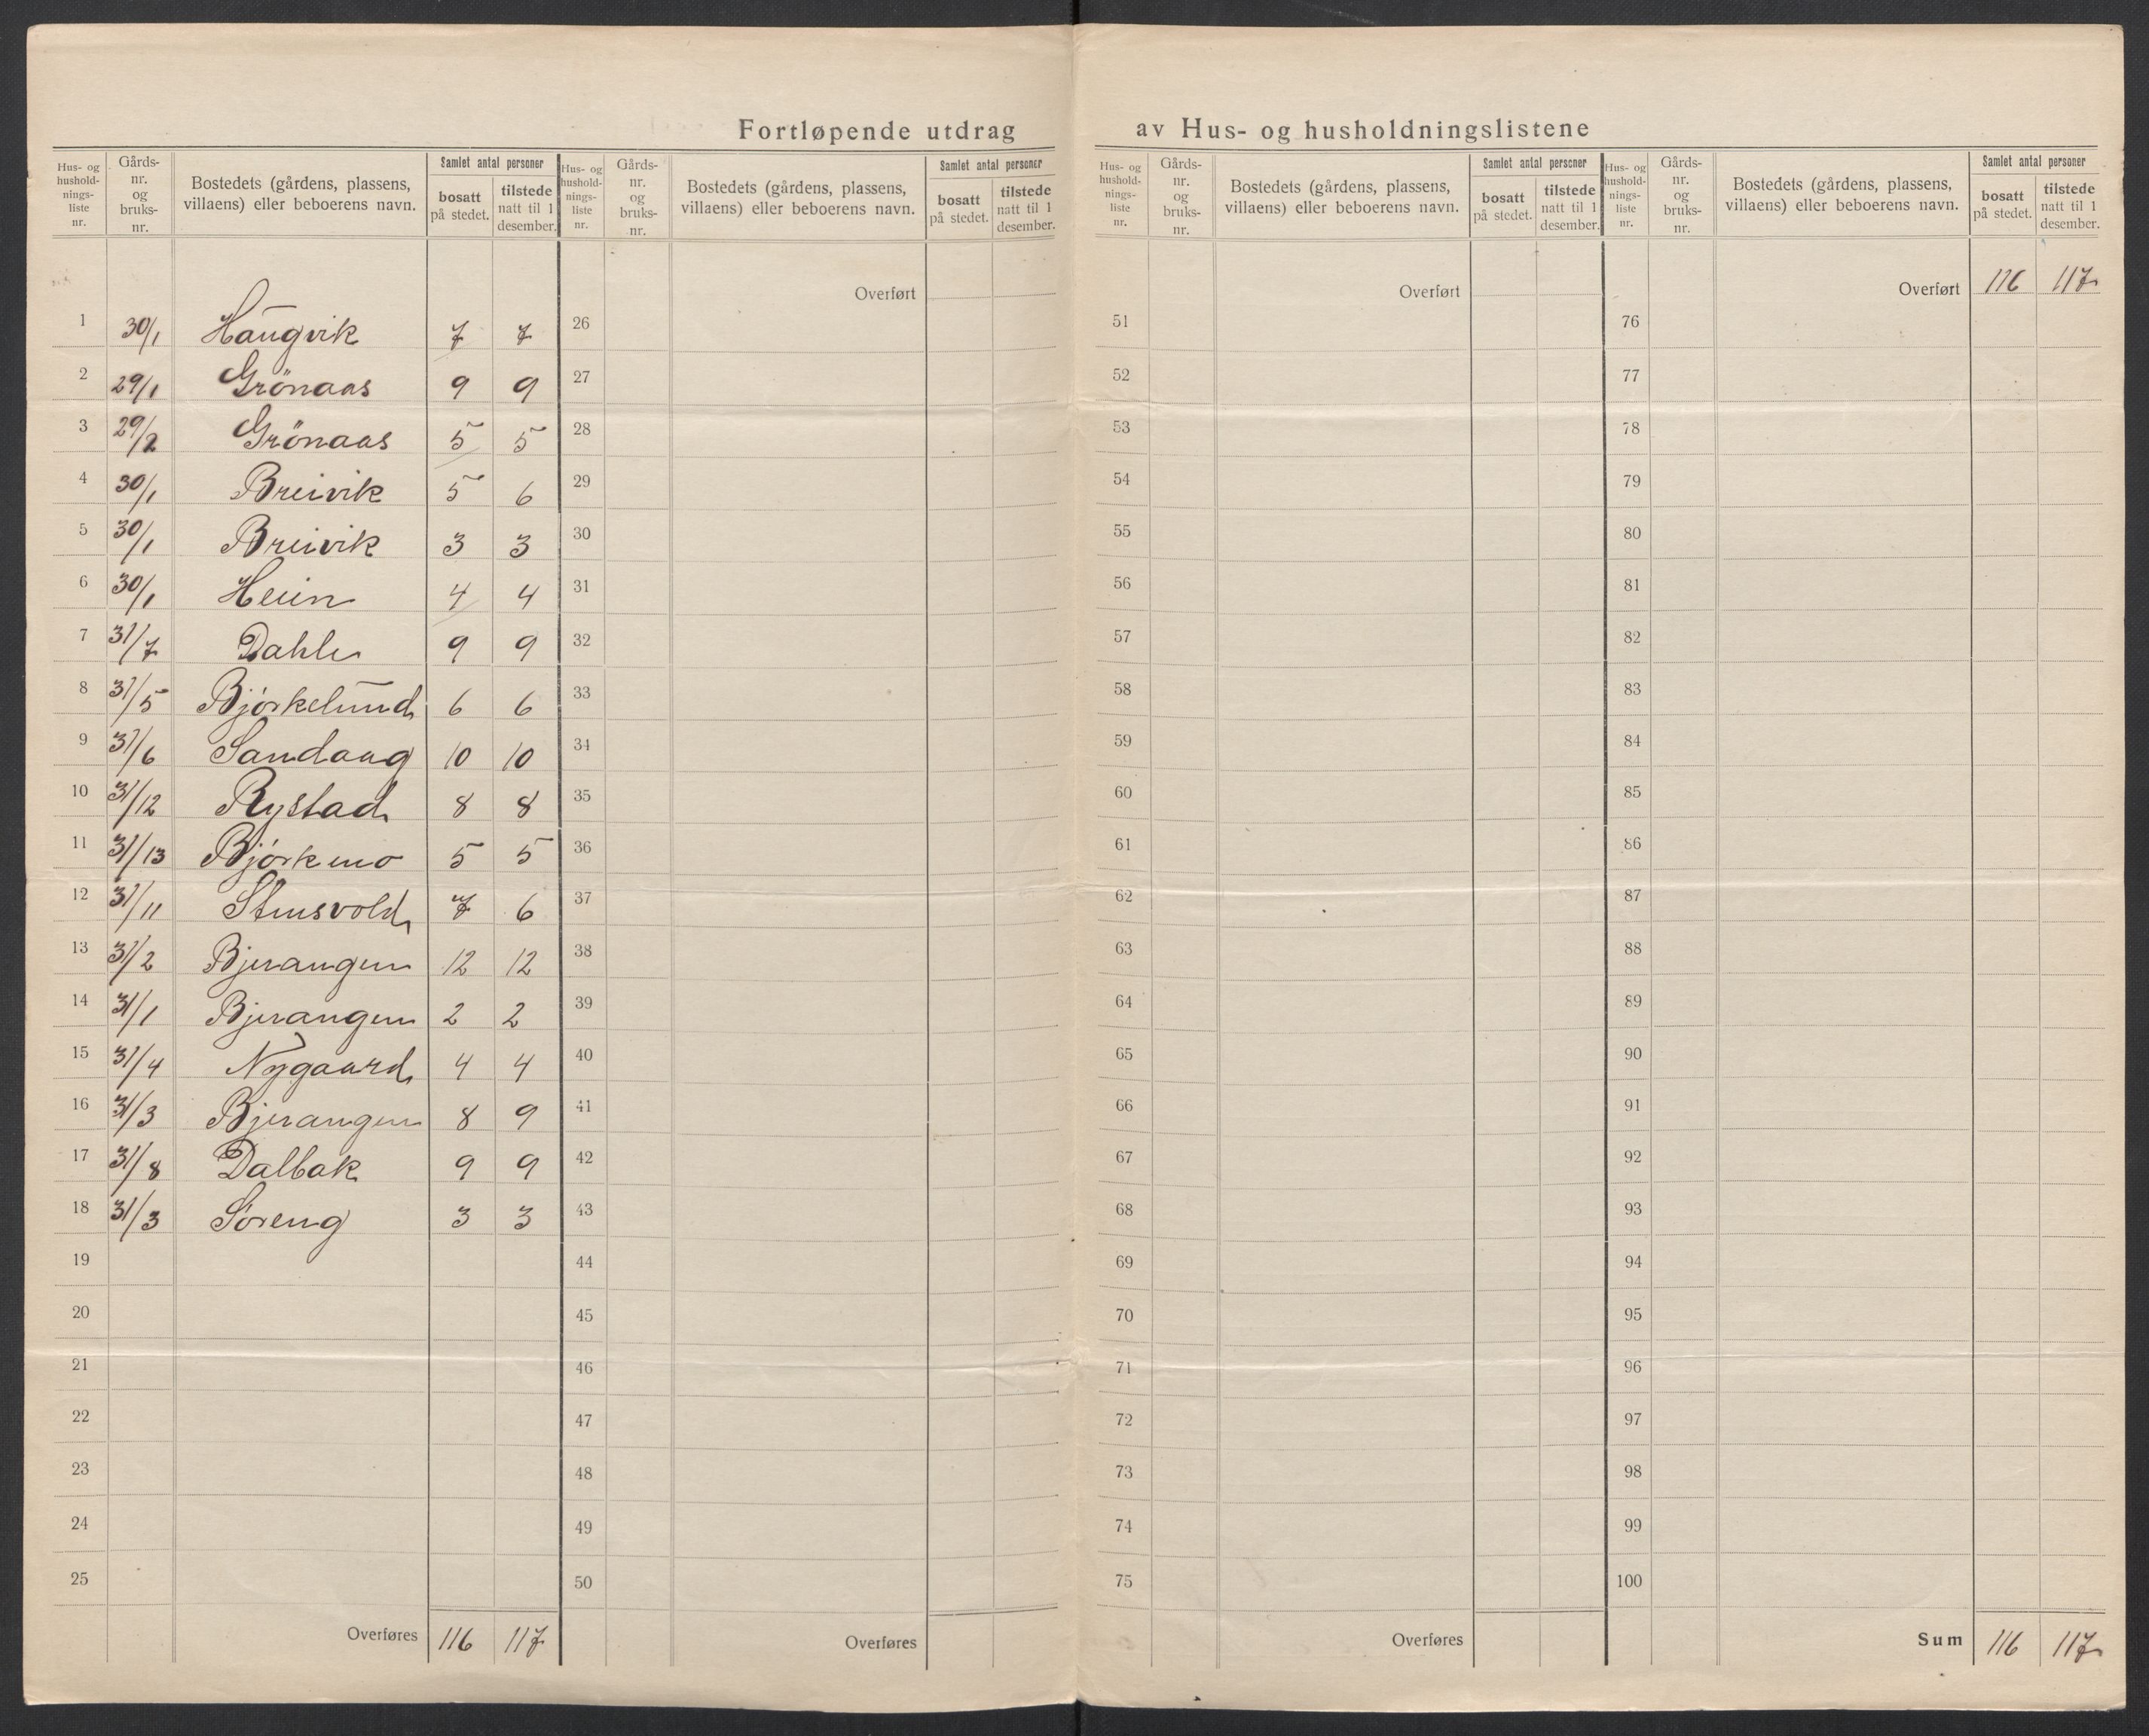 Fortløpende utdrag av Hus- og husholdningslistene
Hus- og hushold-nings-liste nr. | Gårds-nr. og bruks-nr. | Bostedets (gårdens, plassens, villaens) eller beboerens navn. | Samlet antal personer | bosatt på stedet. | tilstede natt til 1 desember.
1 30/1 Haugvik 7 7
2 29/1 Grönaas 9 9
3 29/2 Grönaas 5 5
4 30/1 Breivik 5 6
5 30/1 Breivik 3 3
6 30/1 Heien 4 4
7 31/7 Dahle 9 9
8 31/5 Bjórkelund 6 6
9 31/6 Sandaag 10 10
10 31/12 Rystad 8 8
11 31/13 Bjórkmo 5 5
12 31/11 Stensvold 7 6
13 31/2 Bjerangen 12 12
14 31/1 Bjerangen 2 2
15 31/4 Nygaard 4 4
16 31/3 Bjerangen 8 9
17 31/8 Dalbak 9 9
18 31/3 Sóreng 3 3
19
20
21
22
23
24
25
Overføres 116 117
Hus- og hushold-nings-liste nr. | Gårds-nr. og bruks-nr. | Bostedets (gårdens, plassens, villaens) eller beboerens navn. | Samlet antal personer | bosatt på stedet. | tilstede natt til 1 desember.
Overført
26
27
28
29
30
31
32
33
34
35
36
37
38
39
40
41
42
43
44
45
46
47
48
49
50
Overføres
Hus- og hushold-nings-liste nr. | Gårds-nr. og bruks-nr. | Bostedets (gårdens, plassens, villaens) eller beboerens navn. | Samlet antal personer | bosatt på stedet. | tilstede natt til 1 desember.
Overført
51
52
53
54
55
56
57
58
59
60
61
62
63
64
65
66
67
68
69
70
71
72
73
74
75
Overføres
Hus- og hushold-nings-liste nr. | Gårds-nr. og bruks-nr. | Bostedets (gårdens, plassens, villaens) eller beboerens navn. | Samlet antal personer | bosatt på stedet. | tilstede natt til 1 desember.
Overført 116 117
76
77
78
79
80
81
82
83
84
85
86
87
88
89
90
91
92
93
94
95
96
97
98
99
100
Sum 116 117